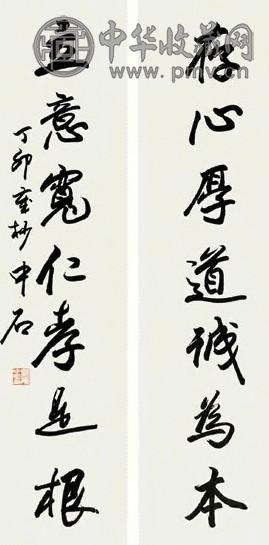 中华收藏网
www.pmv.cn
存心厚道诚為本
立意寬仁孝是根
丁卯歲杪中石